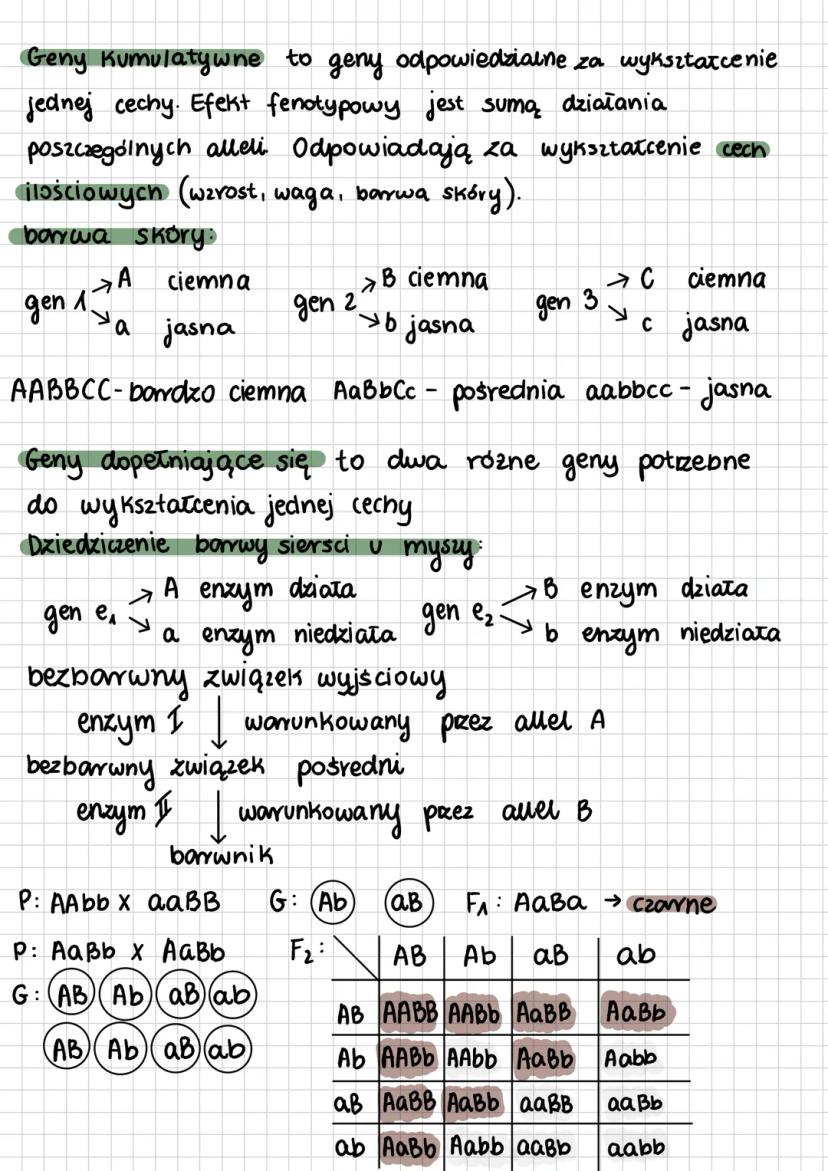 Geny kumulatywne to geny odpowiedzialne za wykształcenie
jednej cechy. Efekt fenotypowy jest sumą działania
poszczególnych alleli. Odpowiadają za wykształcenie cech
ilościowych (wzrost, waga, barwa skóry).
barwa skóry:
gen 1 → A ciemna gen 2 → B ciemna gen 3 → C ciemna
↘ a jasna ↘ b jasna ↘ c jasna
AABBCC - bardzo ciemna AaBbCc - pośrednia aabbcc - jasna
Geny dopełniające się to dwa różne geny potrzebne
do wykształcenia jednej cechy
Dziedziczenie barwy siersci u myszy:
gen e₁ → A enzym działa gen e₂ → B enzym działa
↘ a enzym niedziała ↘ b enzym niedziała
bezbarwny związek wyjściowy
enzym I ↓ warunkowany przez allel A
bezbarwny związek pośredni
enzym II ↓ warunkowany przez allel B
barwnik
P: AAbb x aaBB G: Ab aB F₁: AaBa → czarne
P: AaBb x AaBb
G: AB Ab aB ab
AB Ab aB ab
F₂: AB Ab aB ab
AB AABB AABb AaBB AaBb
Ab AABb AAbb AaBb Aabb
aB AaBB AaBb aaBB aaBb
ab AaBb Aabb aaBb aabb